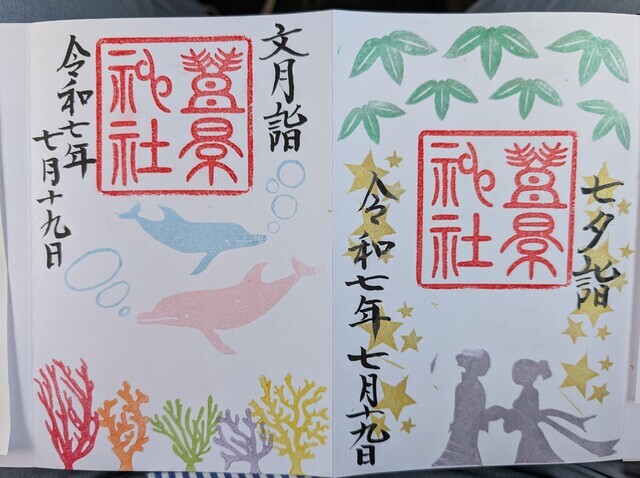 七夕詣
豊景
神社
令和七年七月十九日
文月詣
豊景
神社
令和七年
七月十九日